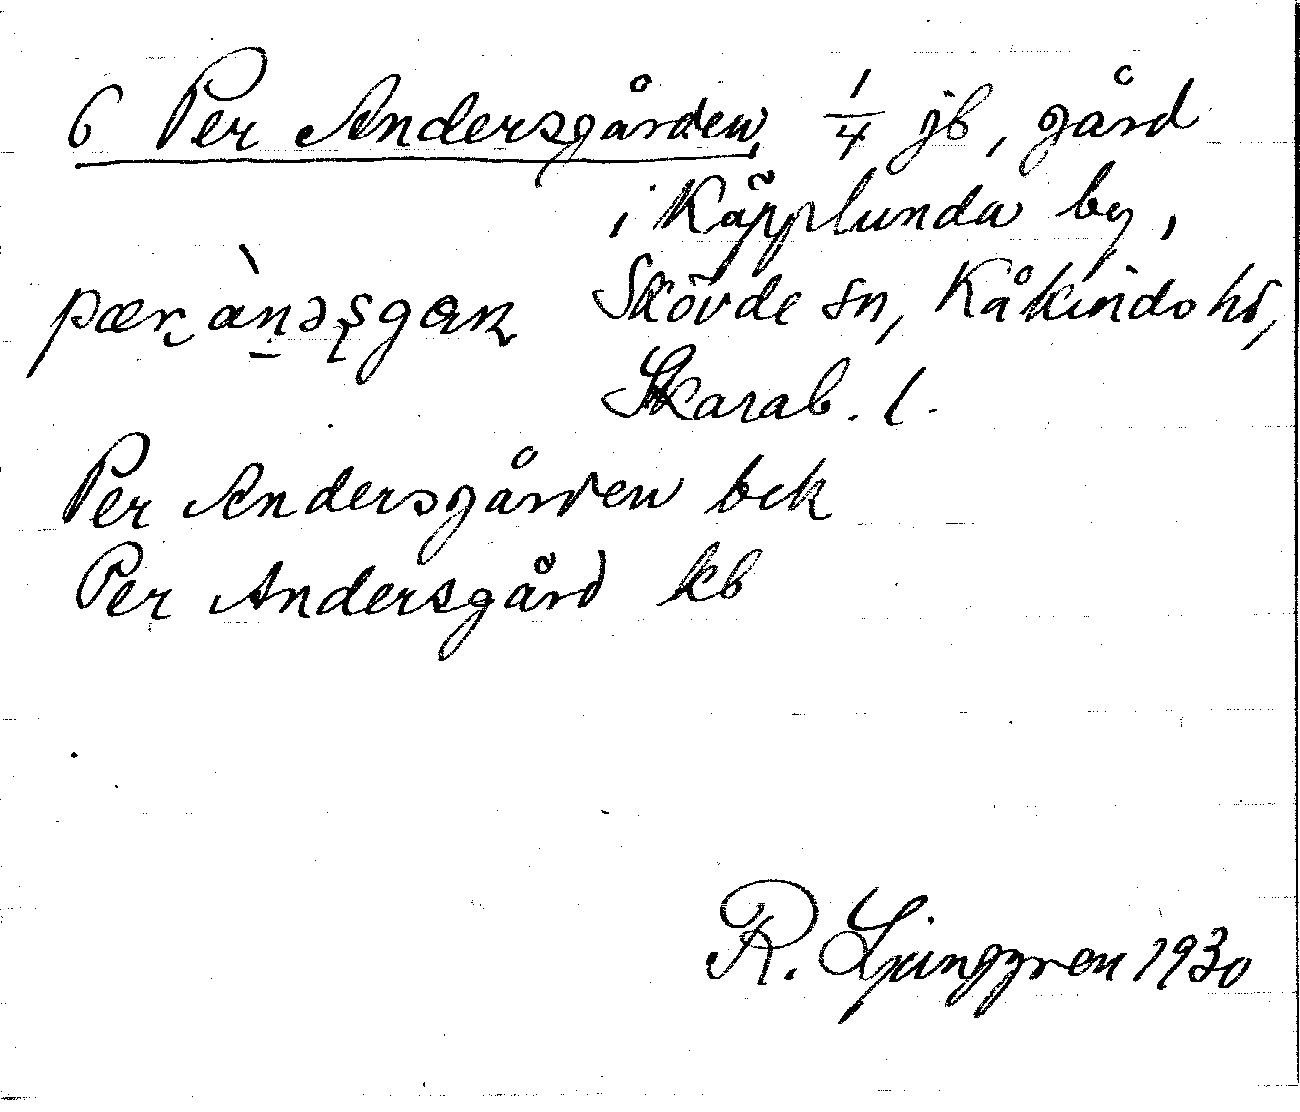 6 Per Andersgården, 1/4 jb, gård
i Käpplunda by,
Skövde sn, Kåkinds hd,
Skarab. l.
Per Andersgården bek
Per Andersgård kb
R. Ljunggren 1930